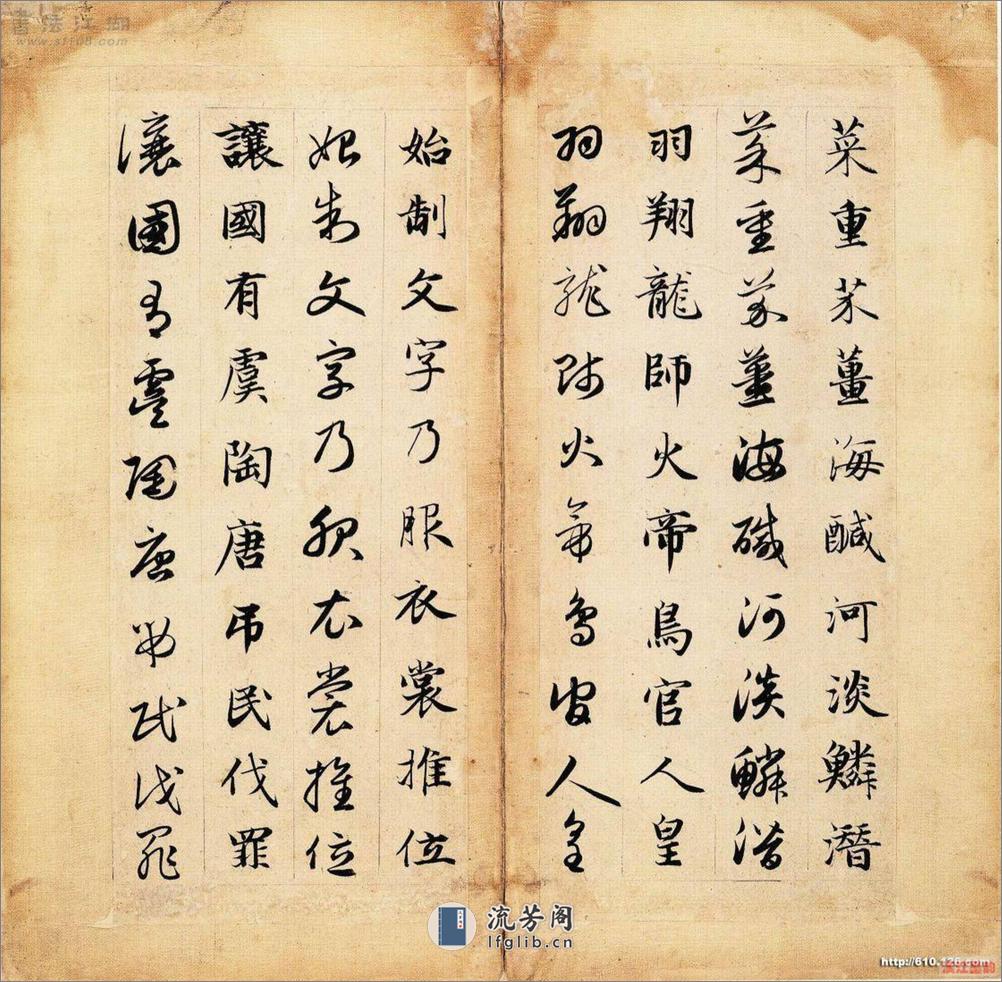 菜重芥薑海醎河淡鱗潛
菜重芥薑海醎河淡鱗潛
羽翔龍師火帝鳥官人皇
羽翔龍師火帝鳥官人皇
始制文字乃服衣裳推位
始制文字乃服衣裳推位
讓國有虞陶唐弔民伐罪
讓國有虞陶唐弔民伐罪
書法江湖
www.sf108.com
流芳阁
lfglib.cn
http://610.126.com